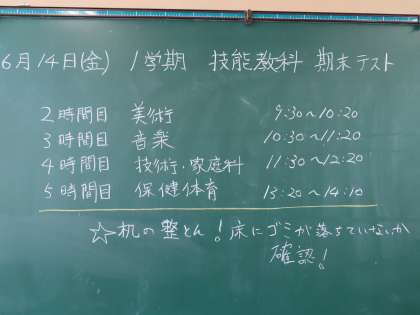 6月14日(金) 1学期 技能教科 期末テスト
2時間目 美術 9:30〜10:20
3時間目 音楽 10:30〜11:20
4時間目 技術・家庭科 11:30〜12:20
5時間目 保健体育 13:20〜14:10
☆机の整とん!床にゴミが落ちていないか
確認!